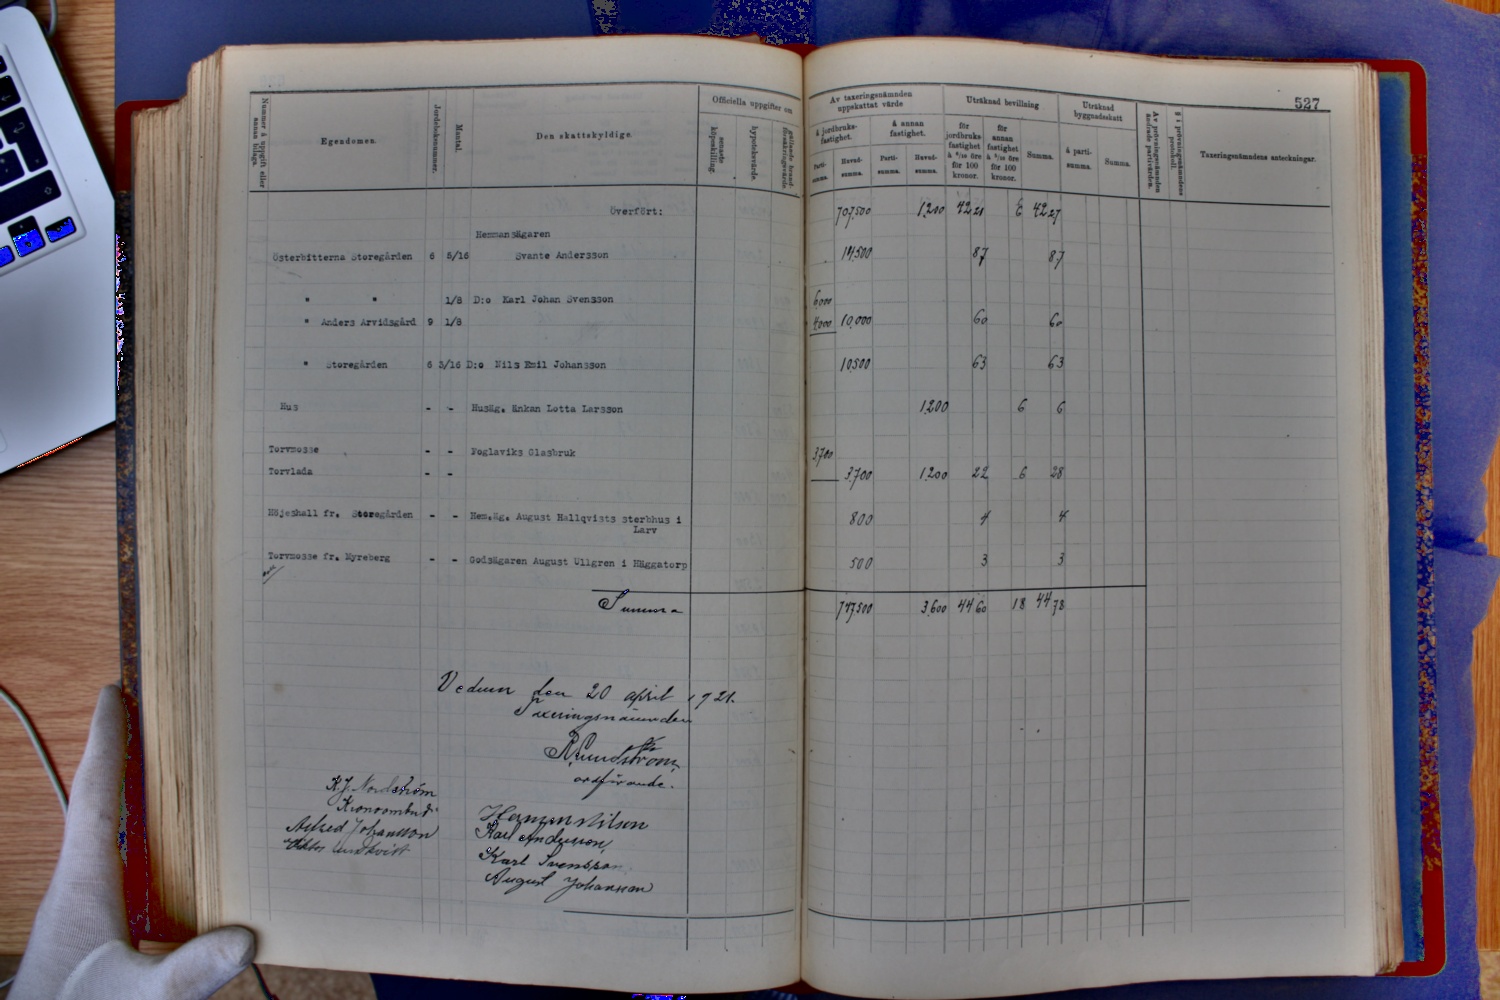 527
Nummer å uppgift eller annan bilaga.
Egendomen.
Jordeboksnummer.
Mantal.
Den skattskyldige.
Officiella uppgifter om
senaste köpeskilling.
hypoteksvärde.
gällande brandförsäkringsvärde
Av taxeringsnämnden uppskattat värde
å jordbruksfastighet.
å annan fastighet.
Parti-summa.
Huvud-summa.
Parti-summa.
Huvud-summa.
Uträknad bevillning
för jordbruksfastighet à 6/10 öre för 100 kronor.
för annan fastighet à 5/10 öre för 100 kronor.
Summa.
Uträknad byggnadsskatt
å parti-summa.
Summa.
Av prövningsnämnden ändrade partivärden.
§ i prövningsnämndens protokoll.
Taxeringsnämndens anteckningar.
Överfört: 707,500 1,200 42 21 6 42 27
Hemmansägaren
Österbitterna Storegården 6 5/16 Svante Andersson 14,500 87 87
" " 1/8 D:o Karl Johan Svensson 6000
" Anders Arvidsgård 9 1/8 4,000 10,000 60 60
" Storegården 6 3/16 D:o Nils Emil Johansson 10,500 63 63
Hus - - Husäg. Enkan Lotta Larsson 1,200 6 6
Torvmosse - - Foglaviks Glasbruk 3,700
Torvlada - - 3,700 1,200 22 6 28
Höjeshall fr. Storegården - - Hem.äg. August Hallqvists sterbhus i
Larv 800 4 4
Torvmosse fr. Myreberg - - Godsägaren August Ullgren i Häggatorp 500 3 3
Summa 747,500 3,600 44 60 18 44 78
Vedum den 20 april 1921.
Taxeringsnämnden
R. Lundström
ordförande.
K.J. Nordström
Kronoombud
Alfred Johansson
Lundkvist
Herman Nilson
Karl Andersson
Karl Svensson
August Johansson